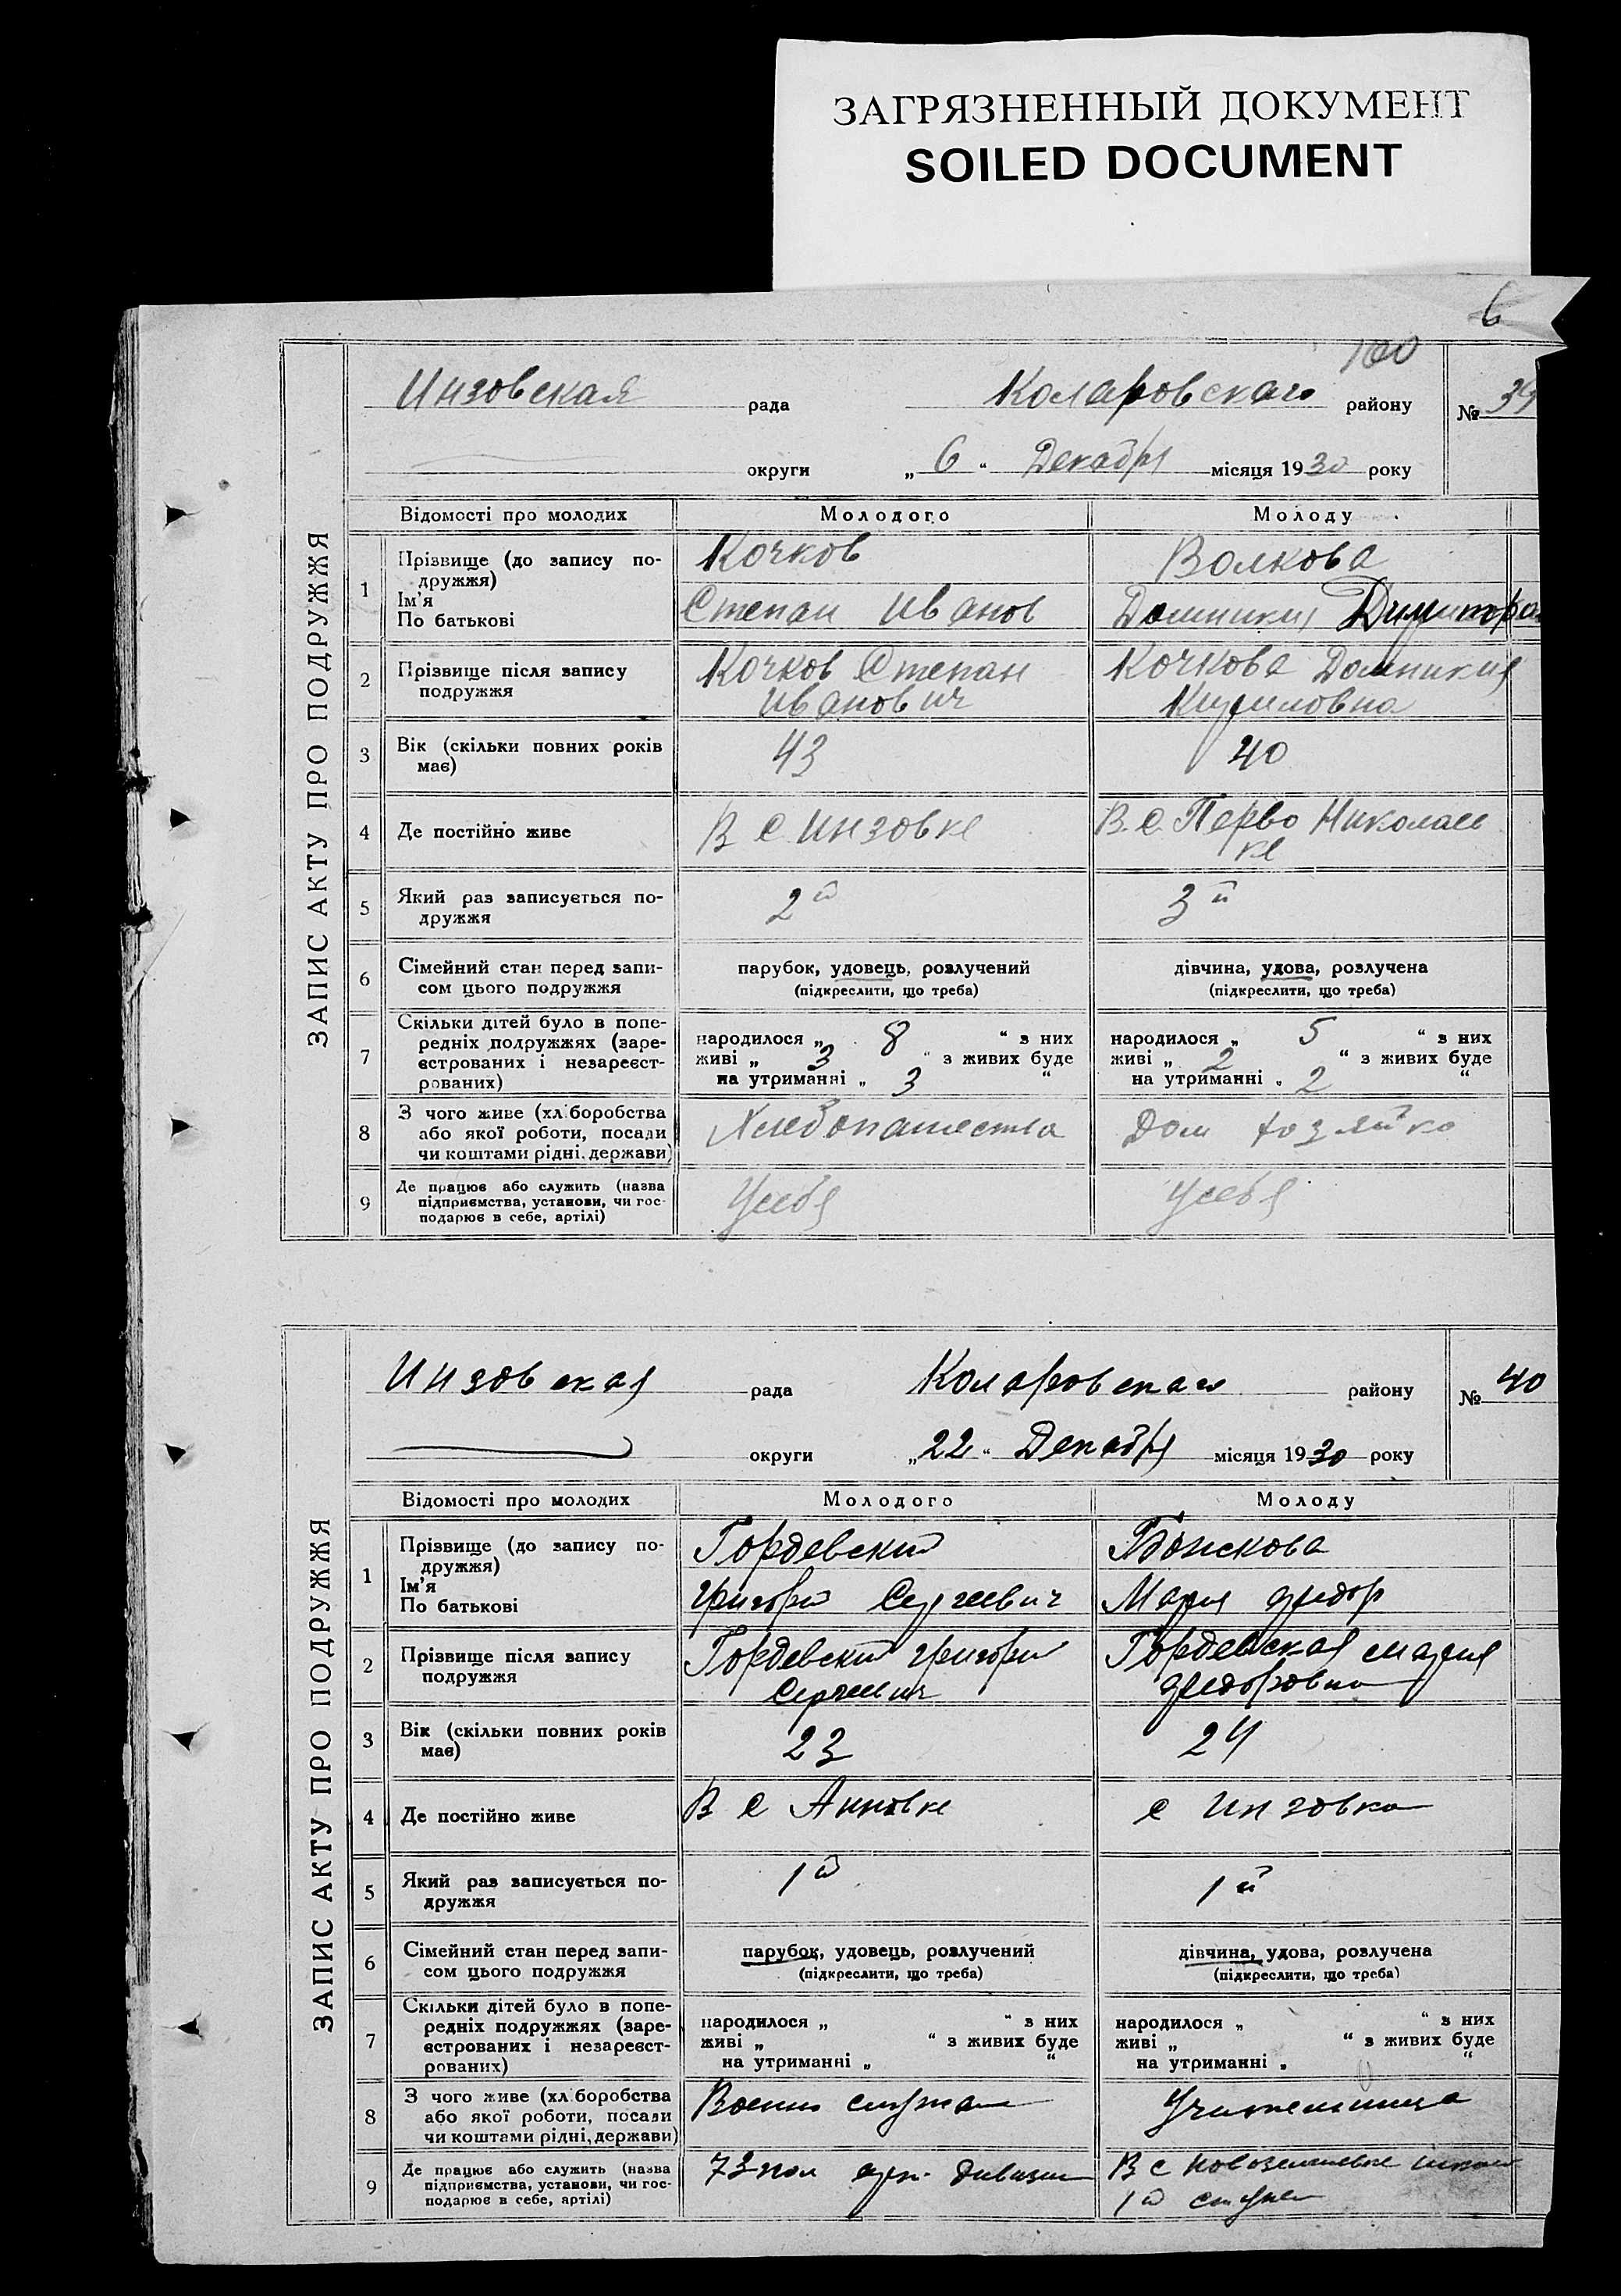 ЗАГРЯЗНЕННЫЙ ДОКУМЕНТ
SOILED DOCUMENT
6
160
ЗАПИС АКТУ ПРО ПОДРУЖЖЯ
Инзовская рада Коларовскаго району № 39
округи „ 6 “ Декабря місяця 1930 року
Відомості про молодих Молодого Молоду
1 Прізвище (до запису по-
дружжя)
Ім'я
По батькові
Кочков Волкова
Степан Иванов Домникия
2 Прізвище після запису
подружжя
Кочков Степан Кочкова Домникия
Иванович Кириловна
3 Вік (скільки повних років
має)
43 40
4 Де постійно живе
В с Инзовке В. с. Перво Николаев
ке
5 Який раз записується по-
дружжя
2й 3й
6 Сімейний стан перед запи-
сом цього подружжя
парубок, удовець, розлучений дівчина, удова, розлучена
(підкреслити, що треба) (підкреслити, що треба)
7 Скільки дітей було в попе-
редніх подружжях (заре-
єстрованих і незареєст-
рованих)
народилося „ 8 “ з них народилося „ 5 “ з них
живі „ 3 “ з живих буде живі „ 2 “ з живих буде
на утриманні „ 3 “ на утриманні „ 2 “
8 З чого живе (хліборобства
або якої роботи, посади
чи коштами рідні, держави)
Хлебопашества Дом хозяйка
9 Де працює або служить (назва
підприємства, установи, чи гос-
подарює в себе, артілі)
Усебя Усебя
ЗАПИС АКТУ ПРО ПОДРУЖЖЯ
Инзовская рада Коларовскаго району № 40
округи „22“ Декабря місяця 1930 року
Відомості про молодих Молодого Молоду
1 Прізвище (до запису по-
дружжя)
Ім'я
По батькові
Гордевский
Григорий Сергеевич Мария Федор
2 Прізвище після запису
подружжя
Гордевский Григорий Гордевская Мария
Сергеевич Федоровна
3 Вік (скільки повних років
має)
23 24
4 Де постійно живе
В с Анновке с Инзовка
5 Який раз записується по-
дружжя
1й 1й
6 Сімейний стан перед запи-
сом цього подружжя
парубок, удовець, розлучений дівчина, удова, розлучена
(підкреслити, що треба) (підкреслити, що треба)
7 Скільки дітей було в попе-
редніх подружжях (заре-
єстрованих і незареєст-
рованих)
народилося „ “ з них народилося „ “ з них
живі „ “ з живих буде живі „ “ з живих буде
на утриманні „ “ на утриманні „ “
8 З чого живе (хліборобства
або якої роботи, посади
чи коштами рідні, держави)
Военно Учительница
9 Де працює або служить (назва
підприємства, установи, чи гос-
подарює в себе, артілі)
73 пол дивизии В с
1й